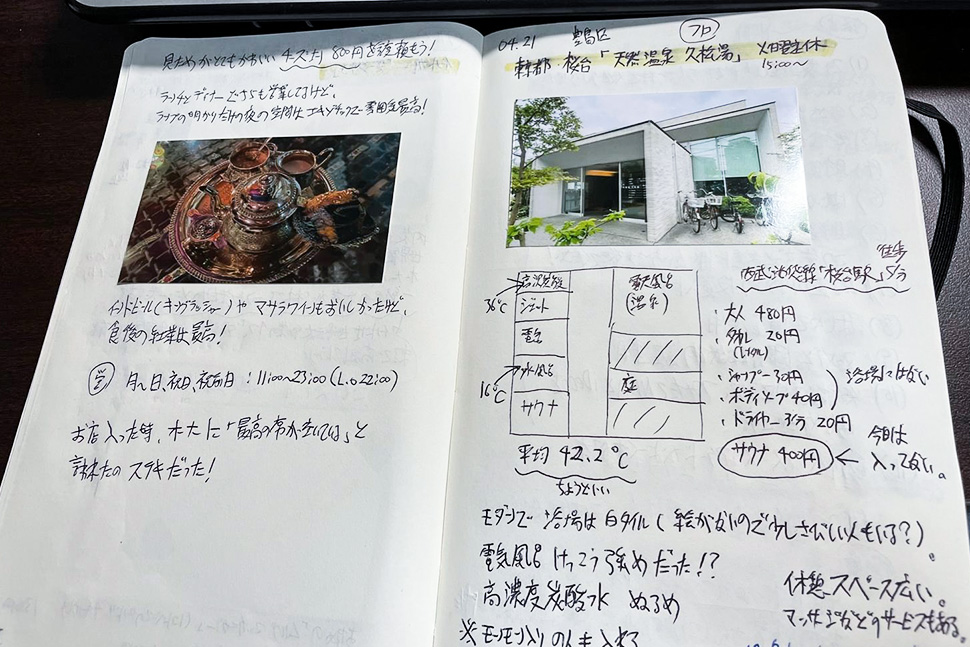 見ためがとてもかわいい チーズナン 800円を是非頼もう!
ランチとディナーでどちらも営業してるけど、
ランプの明かりだけの夜の空間はエキゾチックで雰囲気最高!
インドビール(キングフィッシャー)や マサラワインもおいしかったけど、
食後の紅茶は最高!
営 月〜日、祝日、祝前日:11:00〜23:00 (L.o 22:00)
お店入った時、
「最高の席が空いてます」と
言われたの ステキだった!
04.21 豊島区
7P
東京都・桜台「天然温泉 久松湯」 火曜定休
15:00〜
西武池袋線「桜台駅」5分
徒歩
高濃度炭酸
36℃
ジェット
電気
水風呂
16℃
サウナ
露天風呂
(温泉)
庭
平均 42.2℃
ちょうどいい
・大人 480円
・タオル 20円
(レンタル)
・シャンプー 30円
・ボディソープ 40円
・ドライヤー 3分 20円
浴場にはない
サウナ 400円 ← 今回は
入ってない。
モダンで 浴場は白タイル(絵がないので少しさびしい人もいる?)。
電気風呂 けっこう強めだった!?
高濃度炭酸水 ぬるめ
休憩スペース広い。
マッサージなどのサービスもある。
※モンモン入りの人も入れる